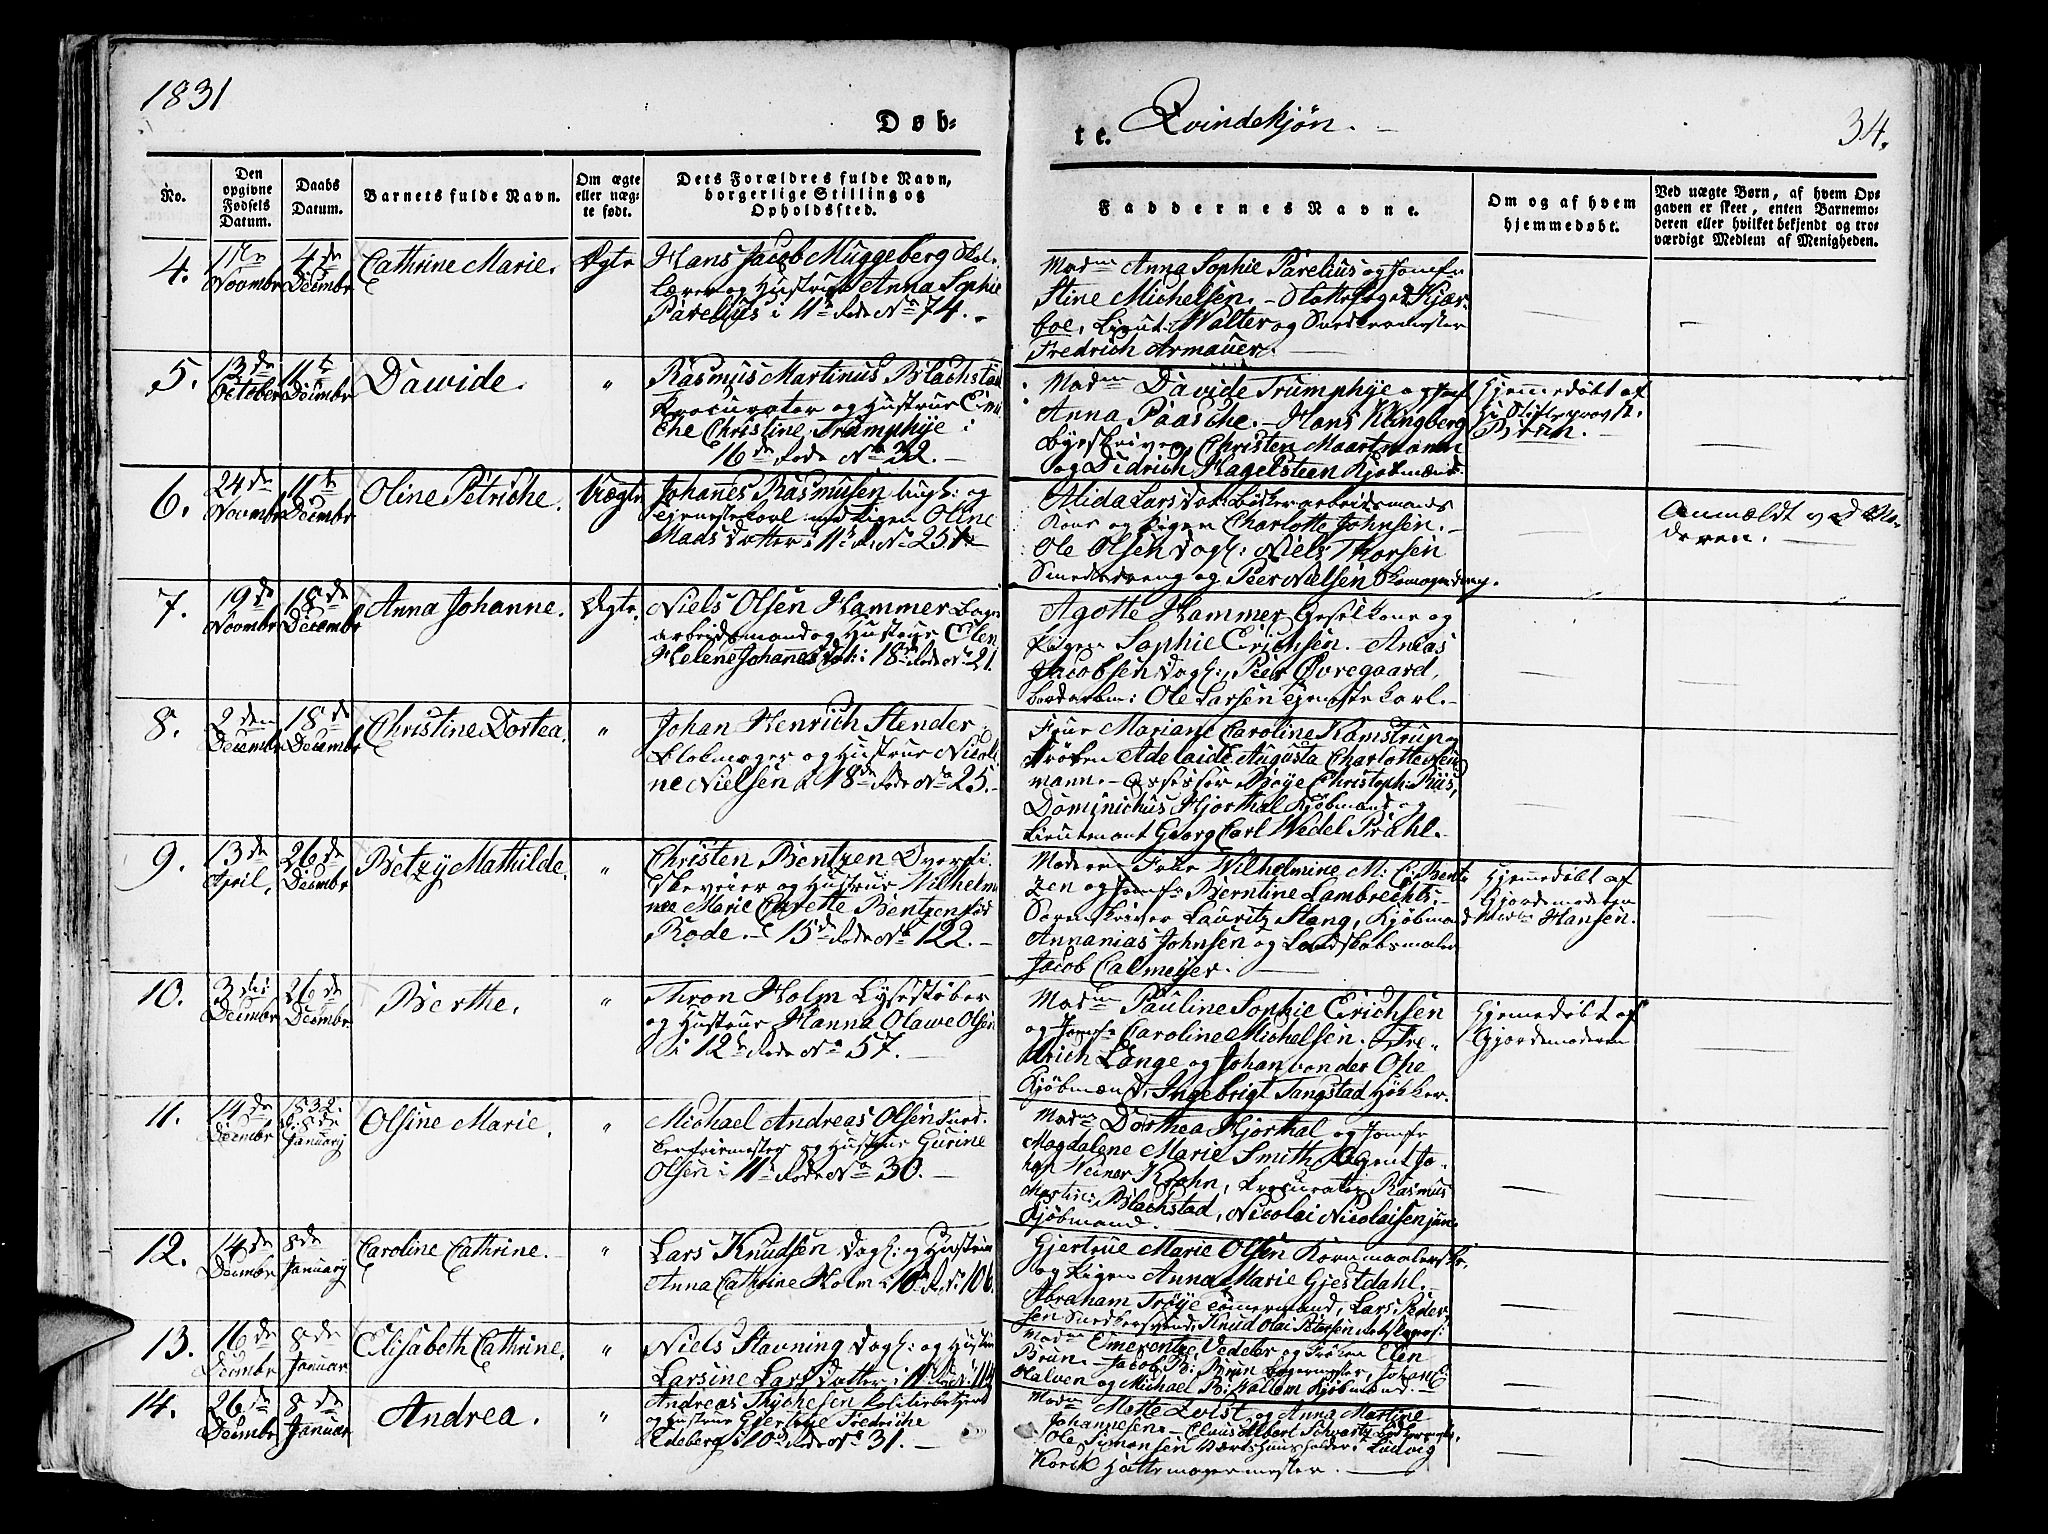 1831
Døb-
te.
Qvindekjøn.
34.
No.
Den opgivne Fødsels Datum.
Daabs Datum.
Barnets fulde Navn.
Om ægte eller uægte født.
Dets Forældres fulde Navn, borgerlige Stilling og Opholdssted.
Faddernes Navne.
Om og af hvem hjemmedøbt.
Ved uægte Børn, af hvem Opgaven er skeet, enten Barnemoderen eller hvilket bekjendt og troværdigt Medlem af Menigheden.
4.
4de Decmbr
Cathrine Marie.
Ægte
Hans Jacob Müggeberg Skol-
lærer og Hustrue Anna Sophie
Parelius i 11te Rode No 74.
Madme Anna Sophie Parelius og Jomfr
Stine Michelsen. Kjær-
boe, Lieut: Walter og
Fredrich Armauer.
5.
13de October
11te Decmbr
Dawide.
"
Rasmus Martinus Blachstad
Procurator og Hustrue Emi
che Christine Trumphye i
16de Rode No 32.
Madme Davide Trumphye og Jomf
Anna Paasche. Hans Klingberg
Byeskriver, Christen Maartmann
og Didrich Hagelsteen Kjøbmænd.
Hjemmedøbt af
Hr Stiftsprovst
Brun.
6.
24de Novmbr
11te Decmbr
Oline Petriche
Uægte
Johannes Rasmusen ungk: og
tjenestekarl med Pigen Oline
Madsdatter i 11te R. No 251.
Alida Larsdatr arbeidsmands
Kone og Pigen Charlotte Johnsen.
Ole Olsen Dagk: Niels Thorsen
Smededreng og Peer Nielsen Skomagerdreng.
Anmældt ved Mo-
deren.
7.
19de Novmbr
18de Decembr
Anna Johanne.
Ægte.
Niels Olsen Hammer
arbeidsmand og Hustrue Elen
Helene Johannesdatr: i 18de Rode No 21.
Agotte Hammer Gesel Kone og
Pigen Sophie Erichsen. Anias
Jacobsen Dagk:, Peer Øvregaard,
Ole Larsen tjenestekarl.
8.
2den Decembr
18de Decembr
Christine Dortea.
"
Johan Henrich Stender
Blokmager og Hustrue Nicoli
ne Nielsen i 18de Rode No 25.
Frue Mariane Caroline Kamstrup og
Frøken Adelaide Augusta Charlotte
mann. Assessor Bøye Christoph: Riis,
Dominichus Hjorthal Kjøbmand og
Lieutenant Georg Carl Wedel Prahl.
9.
13de April,
26de Decmbr
Betzy Mathilde.
"
Christen Bentzen
og Hustrue Wilhelmi
ne Marie Carette Bentzen fød
Rode. 15de Rode No 122.
Moderen Frue Wilhelmine M: C: Bent
zen og Jomfr Berntine Lambrechts:
Sorenskriver Lauritz Stang, Kjøbmand
Annanias Johnsen og Landskabsmaler
Jacob Calmeyer.
Hjemmedøbt af
Gjordemoderen
Madme Hansen.
10.
3die Decmbr
26de Decmbr
Berthe.
"
Thron Holm Lysestøber
og Hustrue Hanna Olawe Olsen
i 12te Rode No 57.
Madme Pauline Sophie Erichsen
og Jomfr Caroline Michelsen. Fre-
drich Lange og Johan von der Ohe
Kjøbmænd, Ingebrigt Tangstad Høkker.
Hjemedøbt af
Gjordemoderen
11.
14de Decmbr
1832.
d: 8de January
Olsine Marie.
"
Michael Andreas Olsen
og Hustrue Gurine
Olsen i 11te Rode No 30.
Madme Dorthea Hjorthal og Jomfr
Magdalene Marie Smith, Agent Jo-
han Weiner Krohn, Procurator Rasmus
Martin: Blachstad, Nicolai Nicolaisen jun.
Kjøbmand.
12.
14de Decmbr
8de January
Caroline Cathrine.
"
Lars Knudsen Dagk: og Hustrue
Anna Cathrine Holm i 10de R. No 106.
Gjertrue Marie Olsen Kornmaalerske,
og Pigen Anna Marie Gjestdahl.
Abraham Trøye tømermand, Lars Peder
sen Snedkersvend, Knud Olai Petersen
13.
16de Decmbr
8de Januar
Elisabeth Cathrine.
"
Niels Stavning Dagk: og Hustrue
Larsine Larsdatter i 11te Rode: 114
Madme Emerentze Vedeler og Frøken Elen
Brun. Jacob B: Brun, Johan C:
Halven og Michael B: Wallem Kjøbmænd.
14.
26de Decmbr
8de Januar
Andrea.
"
Andreas Thychesen Politiebetjent
og Hustrue Gjertrue Fredriche
Edeberg i 10de Rode No 31.
Madme Mette Qvist og Anna Martine
Johannesen. Claus Albert Schvartz
Ole Simonsen Værtshuusholder, Ludvig
Korck Hattemagermester.